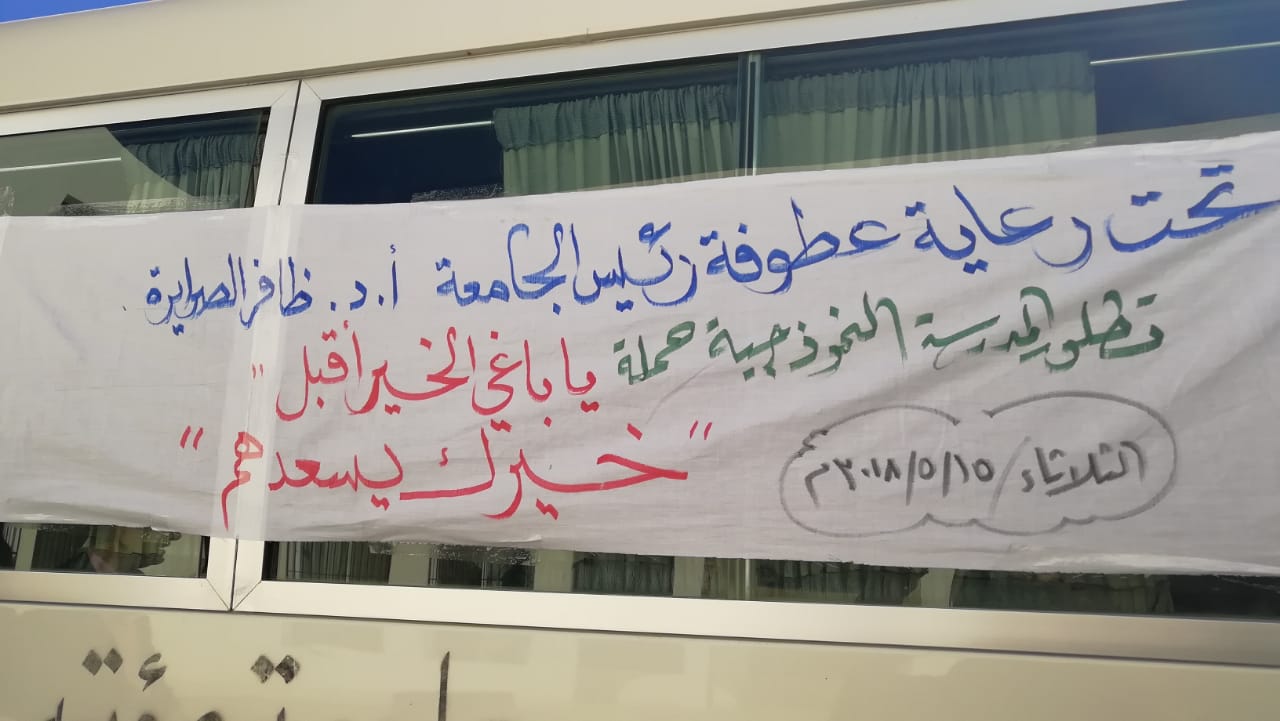 تحت رعاية عطوفة رئيس الجامعة أ.د. ظافر الصرايرة
تطلق المدرسة النموذجية حملة يا باغي الخير أقبل "
" خيرك يسعدهم "
الثلاثاء/ ٢٠١٨/٥/١٥م